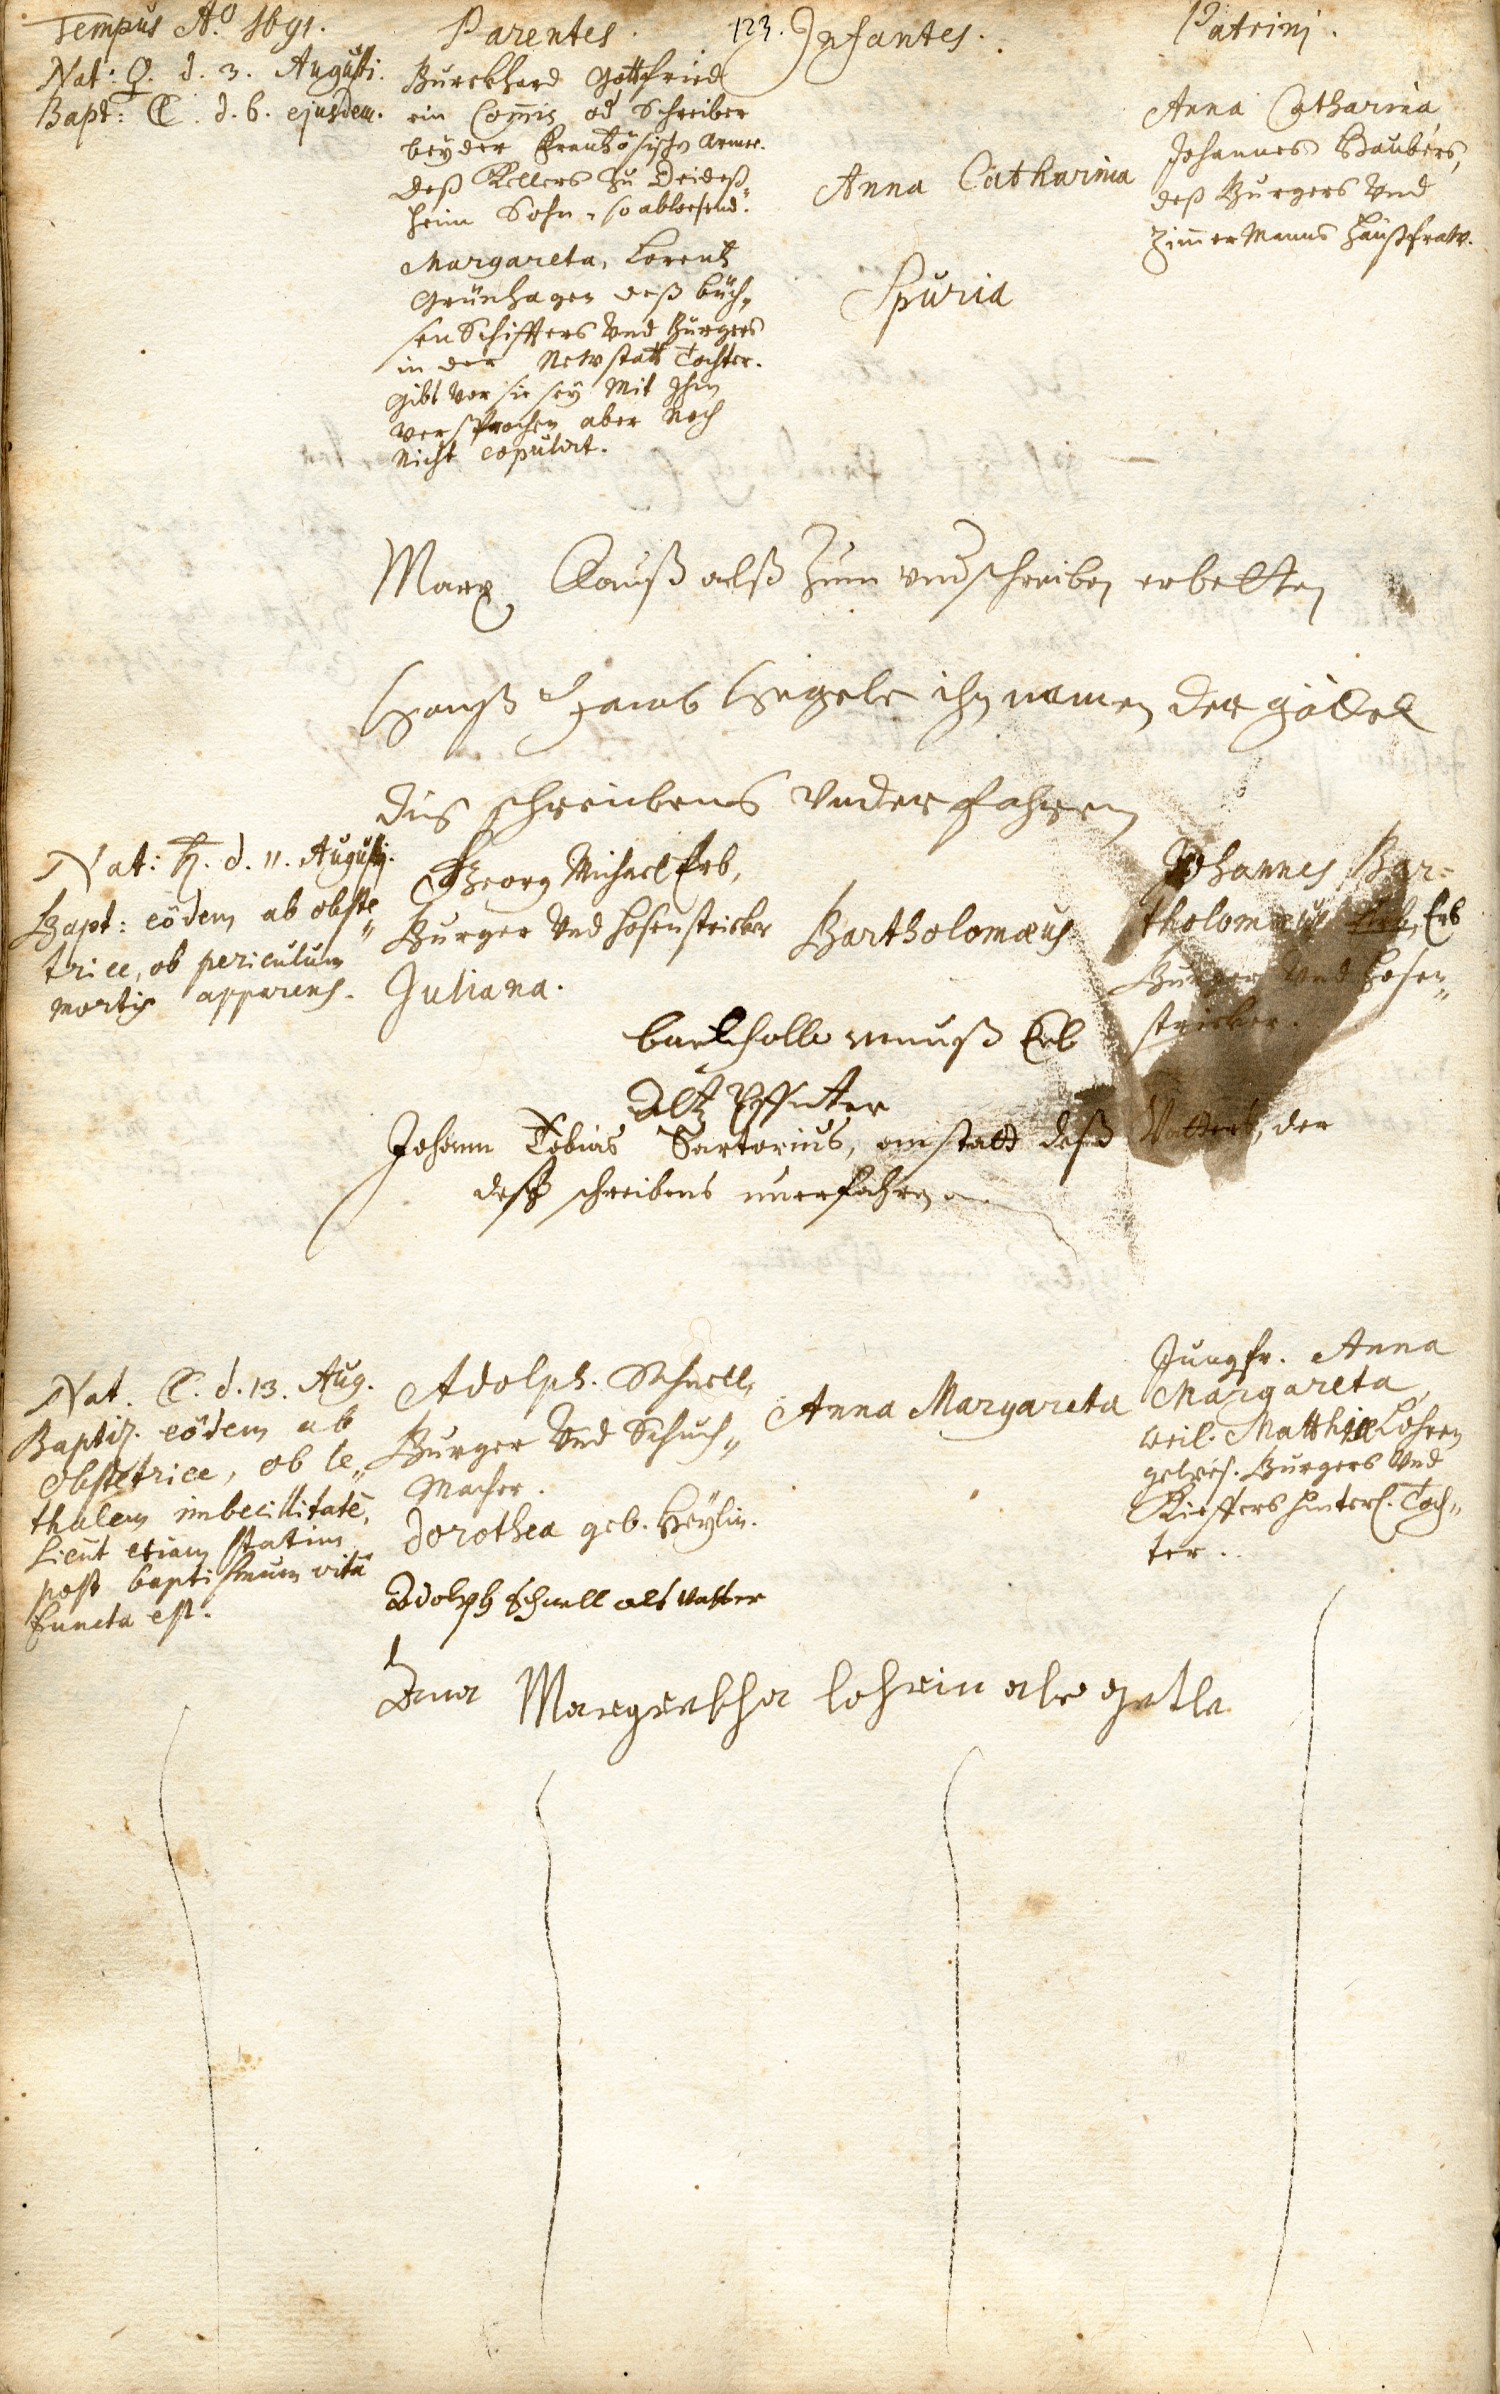 Tempus Aͦ. 1691.
Parentes.
123.
Infantes.
Patrini.
Nat: ♀. d. 3. Augusti.
Bapt: ☾. d. 6. ejusdem.
Burckhard Gottfried
ein Com̄is od Schreiber
bey der Frantzösischen Armee.
deß Kellers zu Deideß„
heim Sohn, so abwesend.
Margareta, Lorentz
Grünhagen deß büch„
sen Schiffters Und Burgers
in der Newstatt Tochter.
gibt vor sie sey Mit Ihm
versprochen aber Noch
Nicht copulirt.
Anna Catharina
Spuria
Anna Catharina
Johannes Haubers,
deß Burgers Und
Zim̄erManns Haußfraw.
Marx Clauß alß Zum undschreiben erbetten
Hanß Jacob Hegele ihn namen der göttel
dis schreibens underfahren
Nat: ♄. d. 11. Augusti.
Bapt: eodem ab obste„
trice, ob periculum
mortis apparens.
Georg Michael Erb,
Burger Und Hosenstricker
Juliana.
Bartholomæus
Johannes Bar=
tholomæus Erb
Burger Und Hosen„
stricker.
bartholle muuß Erb
altz Pffetter
Johann Tobias Sartorius, anstatt deß Vatters, der
deß schreibens unerfahren
Nat. ☾. d. 13. Aug.
Baptiz. eodem ab
obstetrice, ob le„
thalem imbecillitatē,
sicut etiam statim
post baptismum vitâ
functa est.
Adolph. Schnell,
Burger Und Schuch„
Macher.
Dorothea geb. Heylin.
Anna Margareta
Jungfr. Anna
Margareta,
weil. Matthiæ Lohren
gewes. Burgers Und
Kieffers hinterl. Toch„
ter.
Adolph Schnell als Vatter
Anna Margretha lohrin als getle